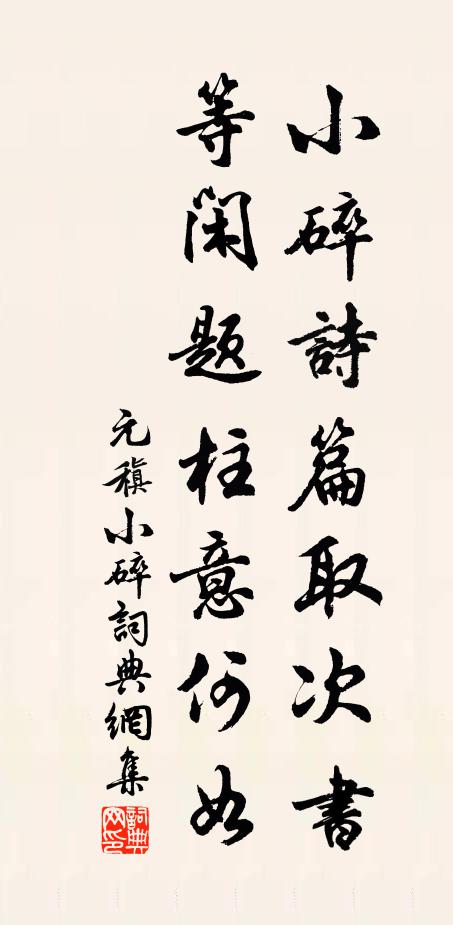 小碎詩篇取次書
等閑題柱意何如
元稹小碎詞典網集
詞典網印